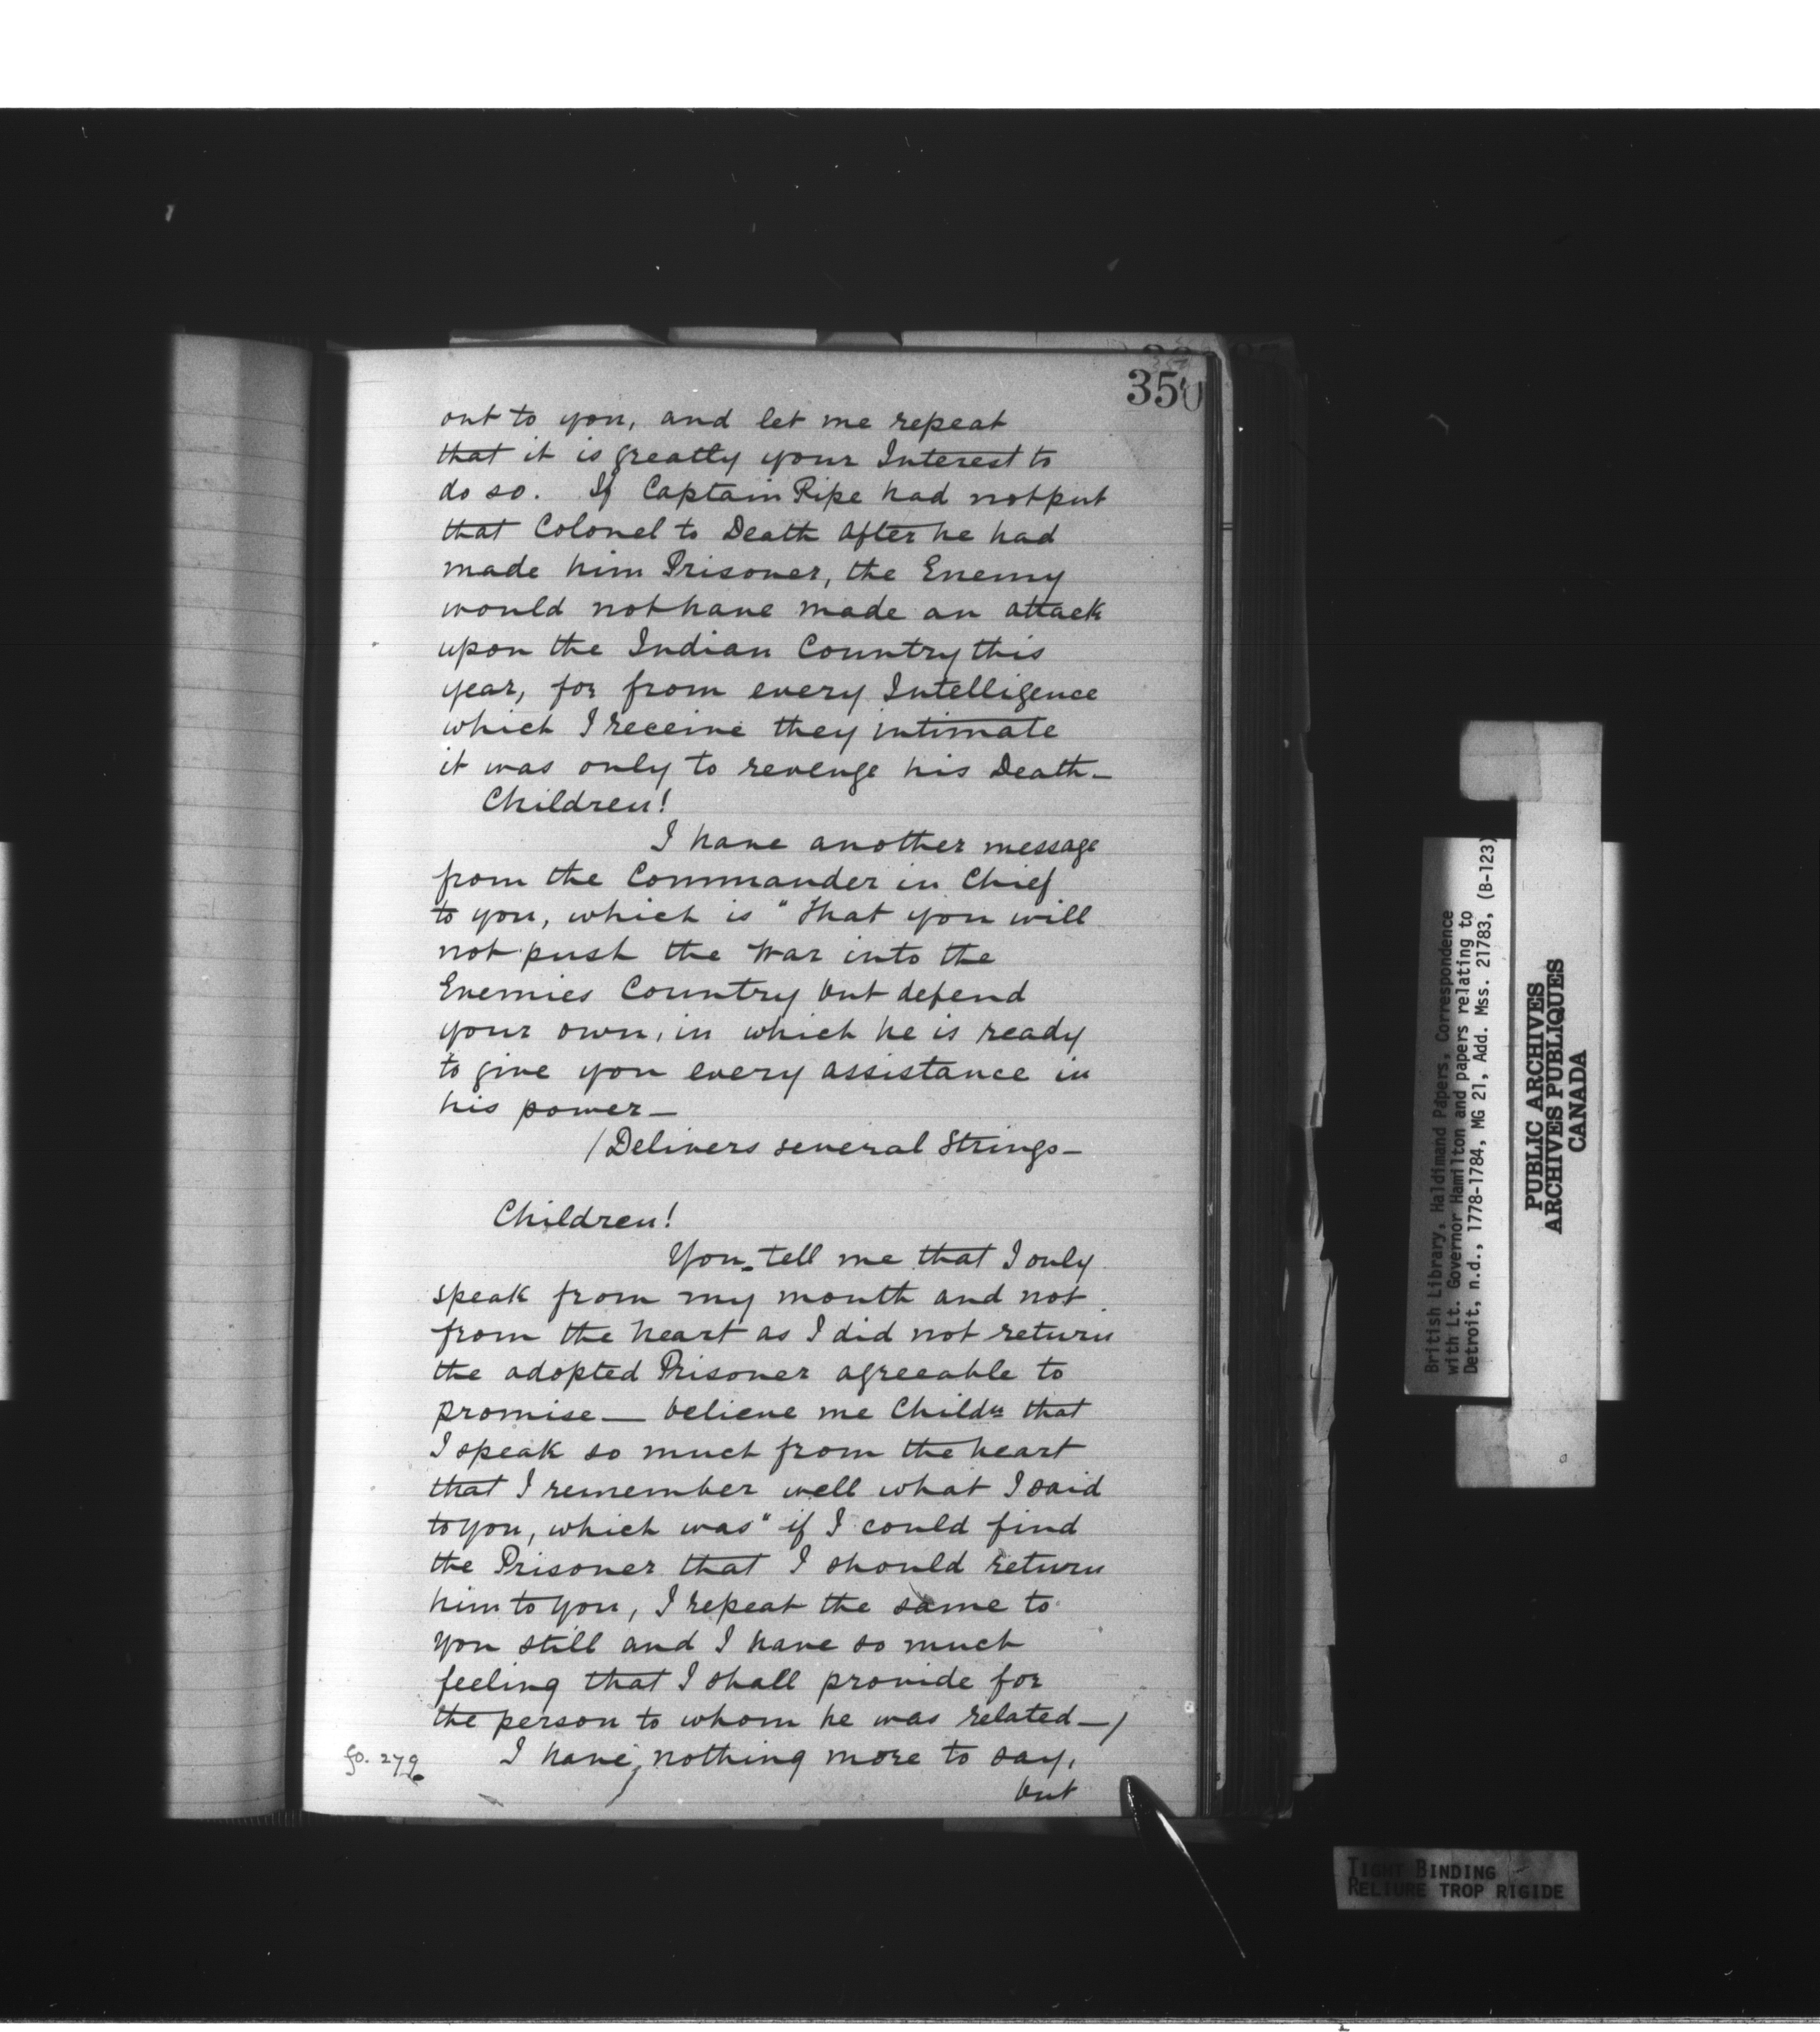 350
out to you, and let me repeat
that it is greatly your Interest to
do so. If Captain Pipe had not put
that Colonel to Death after he had
made him Prisoner, the Enemy
would not have made an attack
upon the Indian Country this
year, for from every Intelligence
which I receive they intimate
it was only to revenge his Death—
Children!
I have another message
from the Commander in Chief
to you, which is "that you will
not push the War into the
Enemies Country but defend
your own, in which he is ready
to give you every assistance in
his power—
/Delivers several Strings—
Children!
You tell me that I only
speak from my mouth and not
from the heart as I did not return
the adopted Prisoner agreeable to
promise — believe me Childn that
I speak so much from the heart
that I remember well what I said
to you, which was "if I could find
the Prisoner that I should return
him to you, I repeat the same to
you still and I have so much
feeling that I shall provide for
the person to whom he was related—/
fo. 279. I have nothing more to say,
but
British Library, Haldimand Papers, Correspondence
with Lt. Governor Hamilton and papers relating to
Detroit, n.d., 1778-1784, MG 21, Add. Mss. 21783, (B-123)
PUBLIC ARCHIVES
ARCHIVES PUBLIQUES
CANADA
TIGHT BINDING
RELIURE TROP RIGIDE